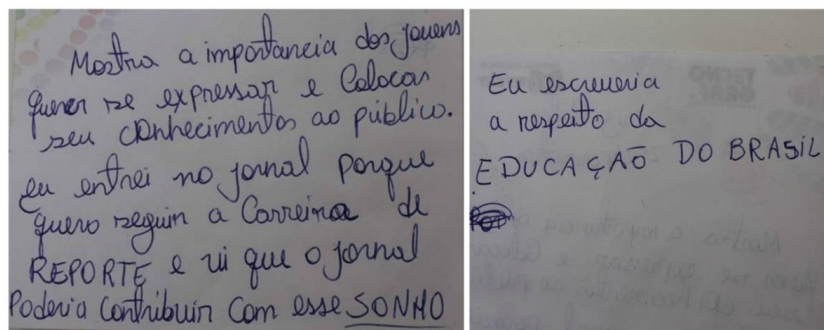 Mostra a importancia dos jovens
querer se expressar e Colocar
seu conhecimentos ao público.
eu entrei no jornal porque
quero seguir a Carreira de
REPORTE e vi que o jornal
Poderia Contribuir Com esse SONHO
Eu escreveria
a respeito da
EDUCAÇÃO DO BRASIL